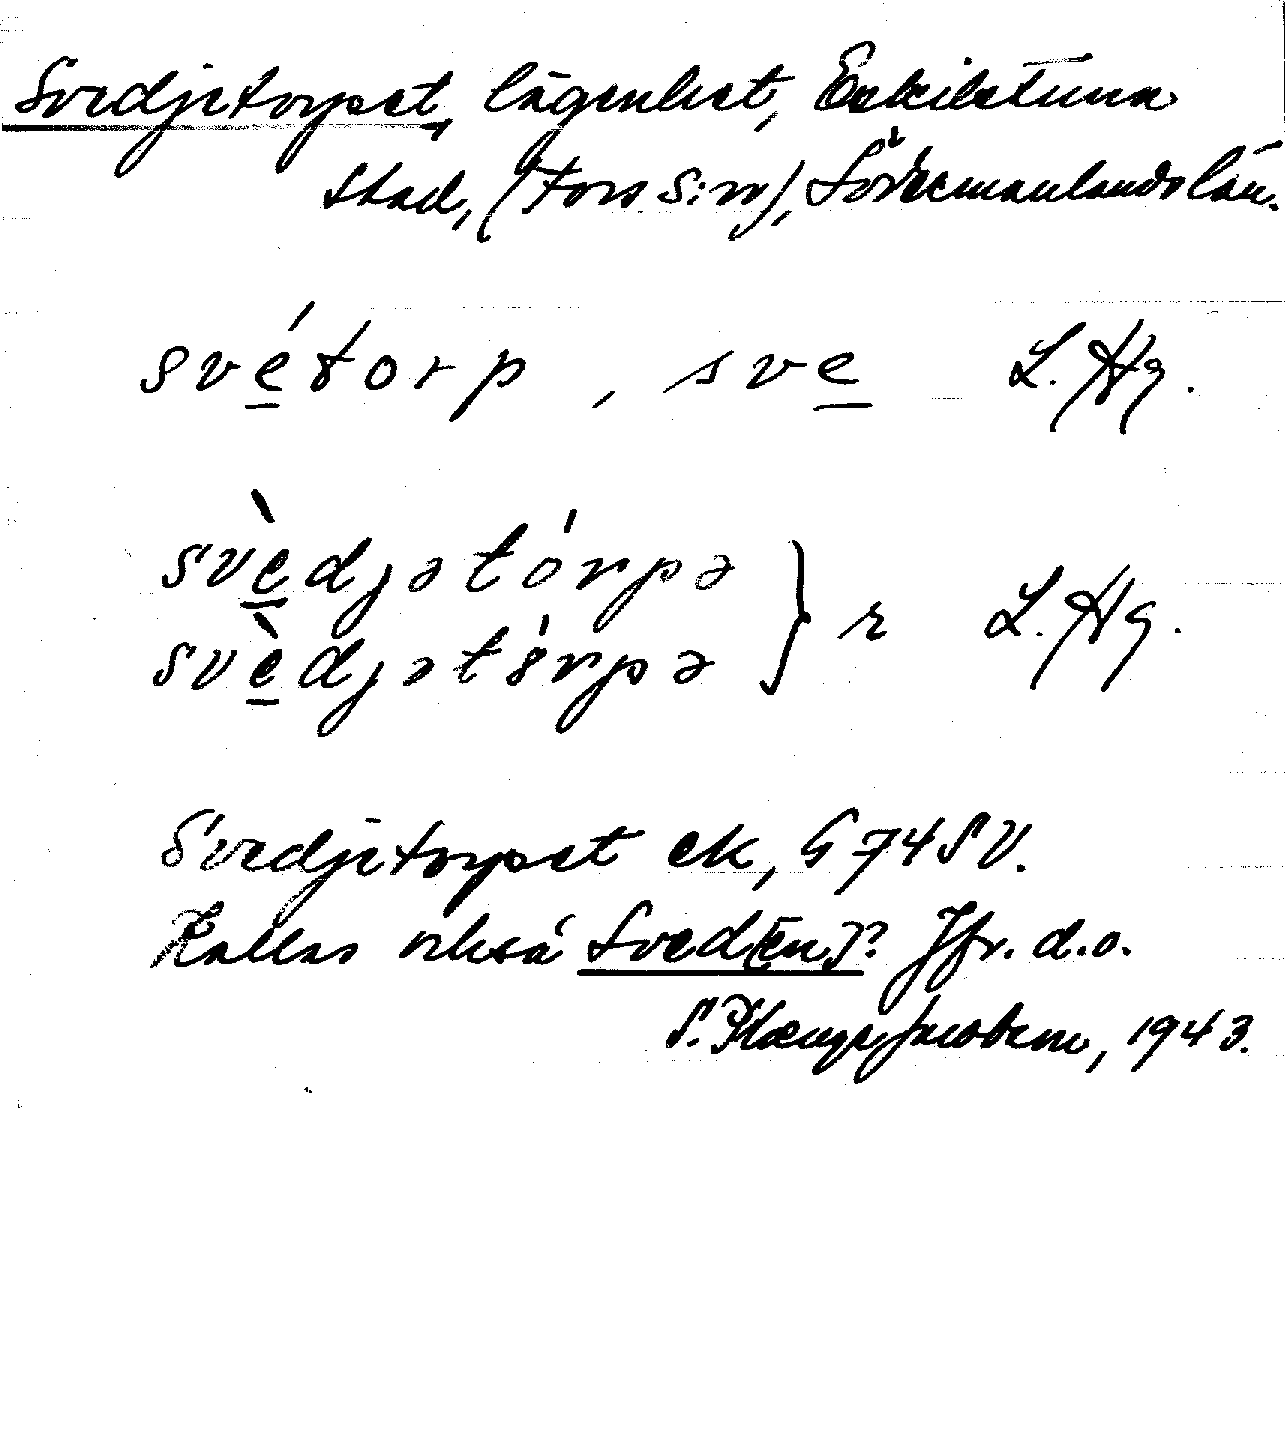 Svedjetorpet, lägenhet, Eskilstuna
stad, (Fors s:n), Södermanlands län.
své̱torp, sve̱ L. Hg.
svè̱djətórpə } r L. Hg.
svè̱djətö́rpə
Svedjetorpet ek, G 74 SV.
Kallas också Sved[en]? Jfr. d.o.
S. , 1943.